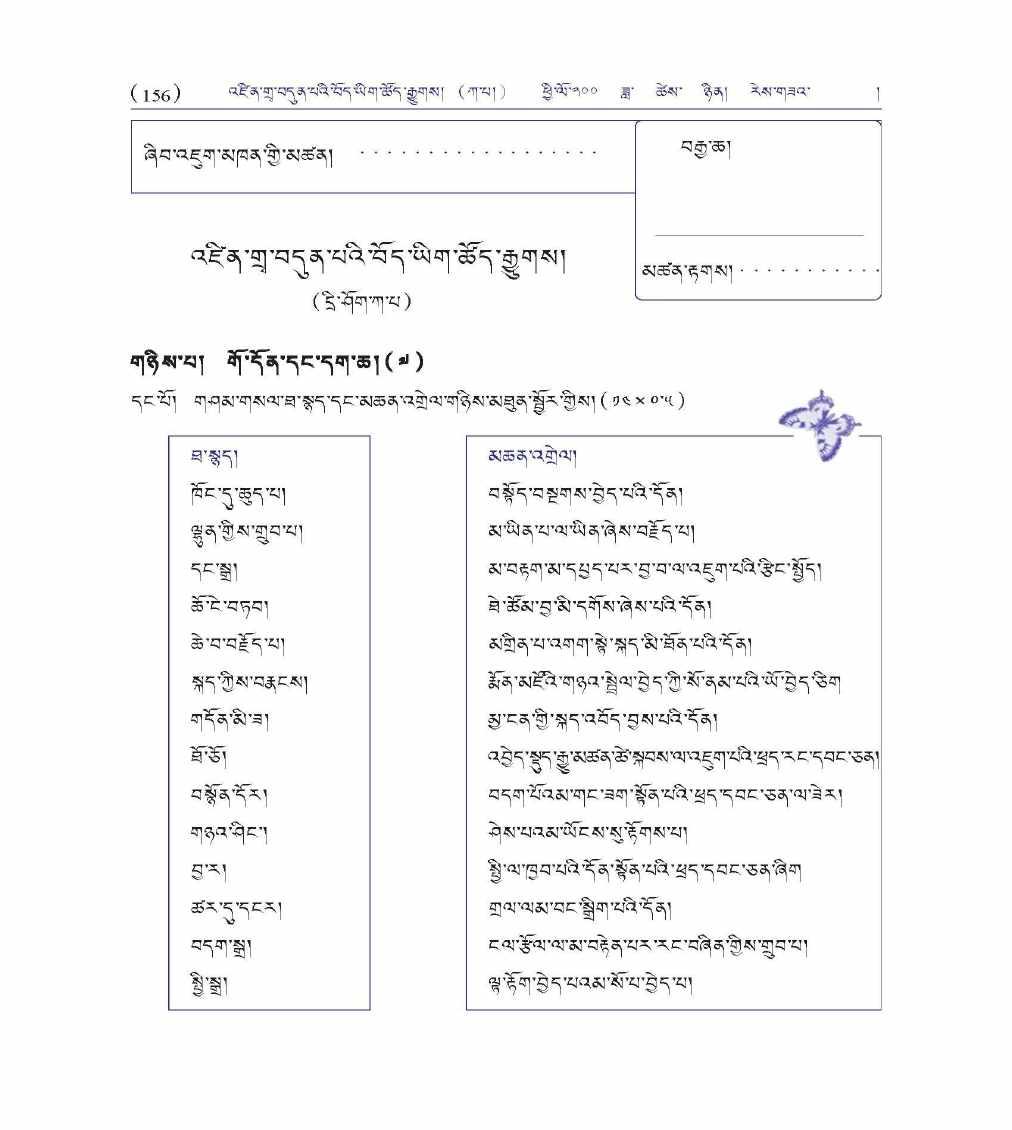 (156) འཛིན་གྲྭ་བདུན་པའི་བོད་ཡིག་ཚོད་རྒྱུགས། (ཀ་པ།) ཕྱི་ལོ་༢༠༠ ཟླ་ ཚེས་ ཉིན། རེས་གཟའ་ །
ཞིབ་འཇུག་མཁན་གྱི་མཚན། . . . . . . . . . . . . . . . . . .
བརྒྱ་ཆ།
འཛིན་གྲྭ་བདུན་པའི་བོད་ཡིག་ཚོད་རྒྱུགས།
མཚན་རྟགས། . . . . . . . . . . .
(དྲི་ཤོག་ཀ་པ)
གཉིས་པ། གོ་དོན་དང་དག་ཆ། (༧)
དང་པོ། གཤམ་གསལ་ཐ་སྙད་དང་མཆན་འགྲེལ་གཉིས་མཐུན་སྦྱོར་གྱིས། (༡༤ × ༠་༥)
ཐ་སྙད།
ཁོང་དུ་ཆུད་པ།
ལྷུན་གྱིས་གྲུབ་པ།
དང་སྒྲ།
ཆོ་ངེ་བཏབ།
ཆེ་བ་བརྗོད་པ།
སྐད་ཀྱིས་བརྣངས།
གདོན་མི་ཟ།
ཐོ་ཅོ།
བསྙོན་དོར།
གཉའ་ཤིང་།
བྱ་ར།
ཚར་དུ་དངར།
བདག་སྒྲ།
སྤྱི་སྒྲ།
མཆན་འགྲེལ།
བསྟོད་བསྔགས་བྱེད་པའི་དོན།
མ་ཡིན་པ་ལ་ཡིན་ཞེས་བརྗོད་པ།
མ་བརྟག་མ་དཔྱད་པར་བྱ་བ་ལ་འཇུག་པའི་རྩིང་སྤྱོད།
ཐེ་ཚོམ་བྱ་མི་དགོས་ཞེས་པའི་དོན།
མགྲིན་པ་འགག་སྟེ་སྐད་མི་ཐོན་པའི་དོན།
རྨོན་མཛོའི་གཉའ་སྦྲེལ་བྱེད་ཀྱི་སོ་ནམ་པའི་ཡོ་བྱེད་ཅིག
མྱ་ངན་གྱི་སྐད་འབོད་བྱས་པའི་དོན།
འབྱེད་སྡུད་རྒྱུ་མཚན་ཚེ་སྐབས་ལ་འཇུག་པའི་ཕྲད་རང་དབང་ཅན།
བདག་པོའམ་གང་ཟག་སྟོན་པའི་ཕྲད་དབང་ཅན་ལ་ཟེར།
ཤེས་པའམ་ཡོངས་སུ་རྟོགས་པ།
སྤྱི་ལ་ཁྱབ་པའི་དོན་སྟོན་པའི་ཕྲད་དབང་ཅན་ཞིག
གྲལ་ལམ་བང་སྒྲིག་པའི་དོན།
ངལ་རྩོལ་ལ་མ་བརྟེན་པར་རང་བཞིན་གྱིས་གྲུབ་པ།
ལྟ་རྟོག་བྱེད་པའམ་སོ་པ་བྱེད་པ།